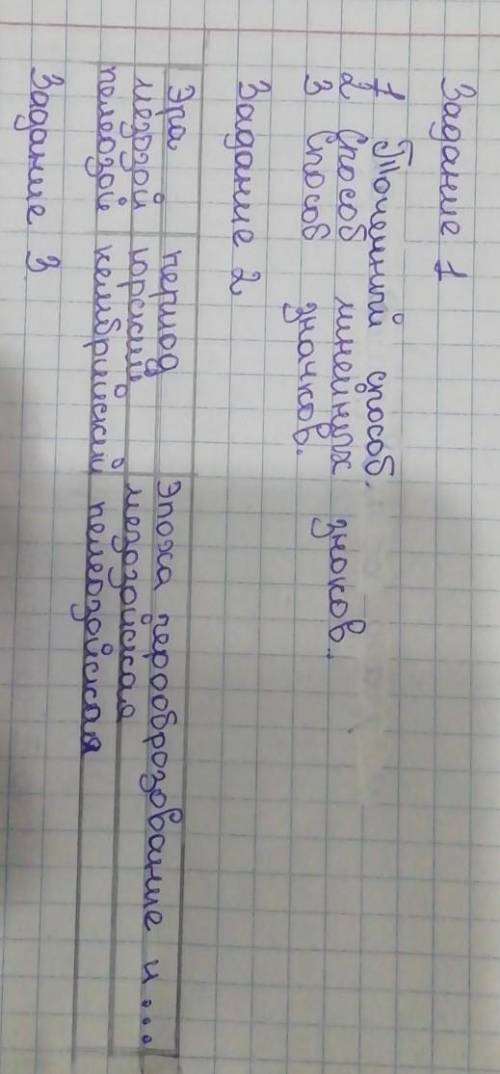 Задание 1
1 Точечный способ.
2 Способ линейных знаков.
3 Способ значков.
Задание 2
Эра период Эпоха герооброзование и ...
мезозой юрский мезозойская
пелеозой кембрийский пелеозойская
Задание 3